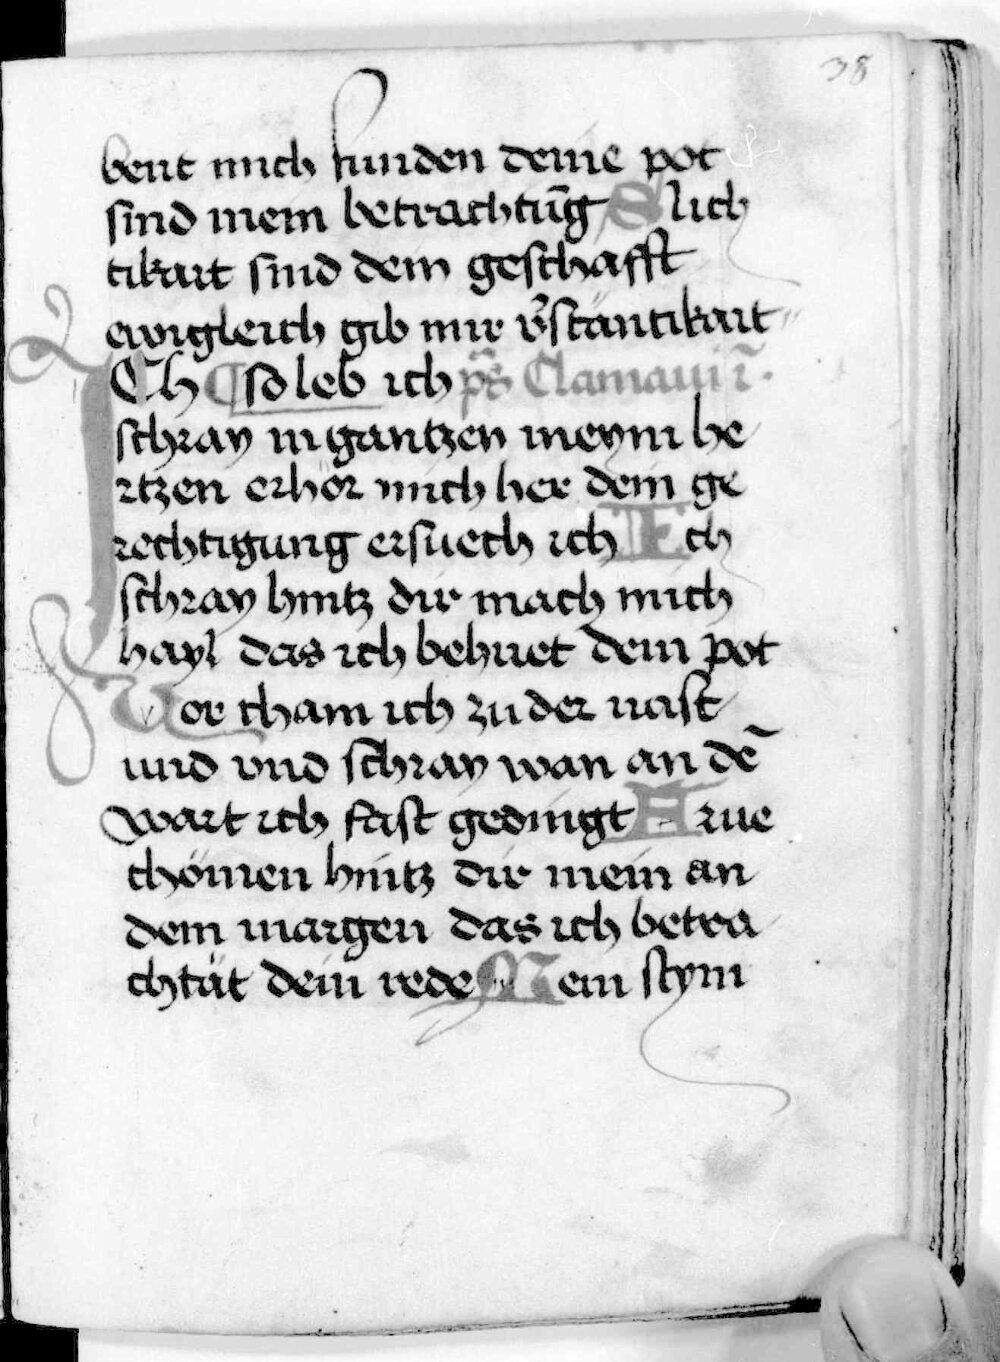 38
bent mich funden deine pot
sind mein betrachtūg Slich
tikait sind dein geschafft
ewigleich gib mir v̄stäntikait
ICh so leb ich ps̄ Clamaui ī.
schray in gantzen meyni he
rtzen erhör mich her dein ge
rechtigung ersuech ich Ich
schray hintz dir mach mich
hayl das ich behuet dein pot
Vor cham ich zu der uast
und vnd schray wan an dē
wart ich fast gedingt H rue
chömen hintz dir mein an
dem margen das ich betra
chtät dein rede Mein stym